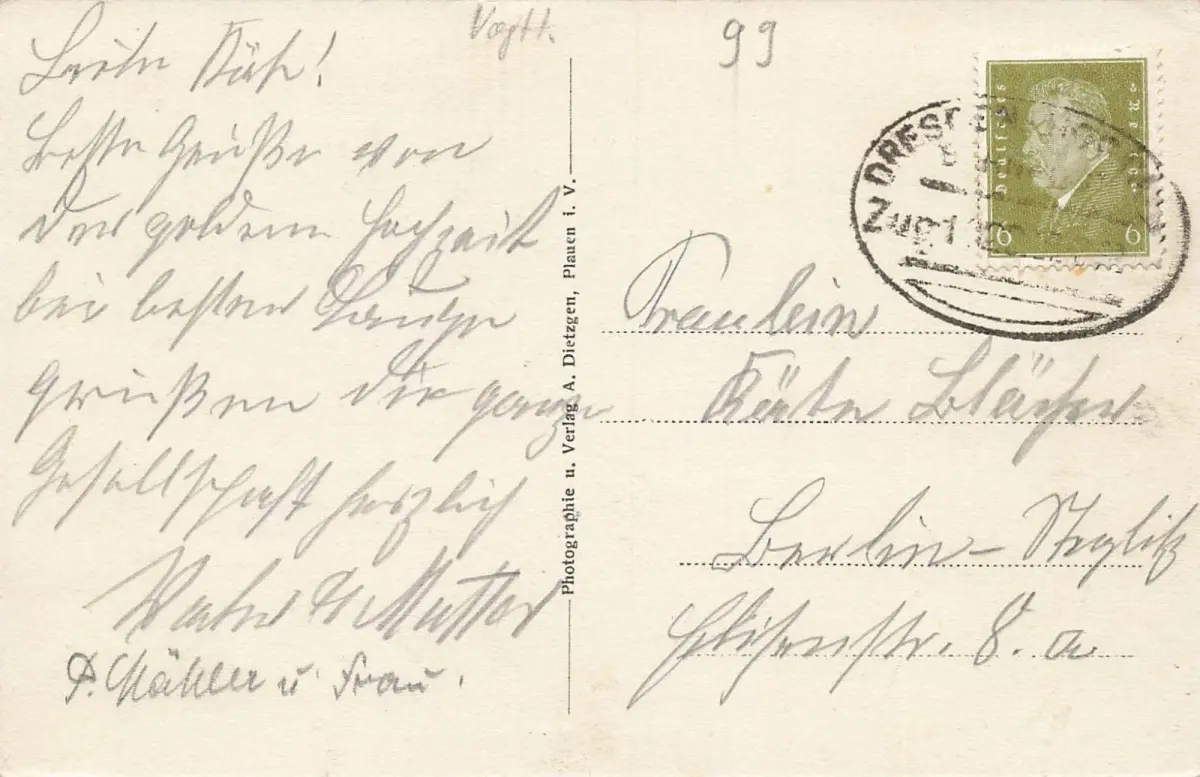 Vogtl.
99
Liebe Käte!
Beste Grüße von
der goldenen Hochzeit
bei bester Laune
grüßen die ganze
Gesellschaft herzlich
Vater u. Mutter
P. Mähler u. Frau.
Photographie u. Verlag A. Dietzgen, Plauen i. V.
Deutsches Reich
6 6
DRESDEN
Zug
Fräulein
Käte Bläser
Berlin-Steglitz
str. 8. a.